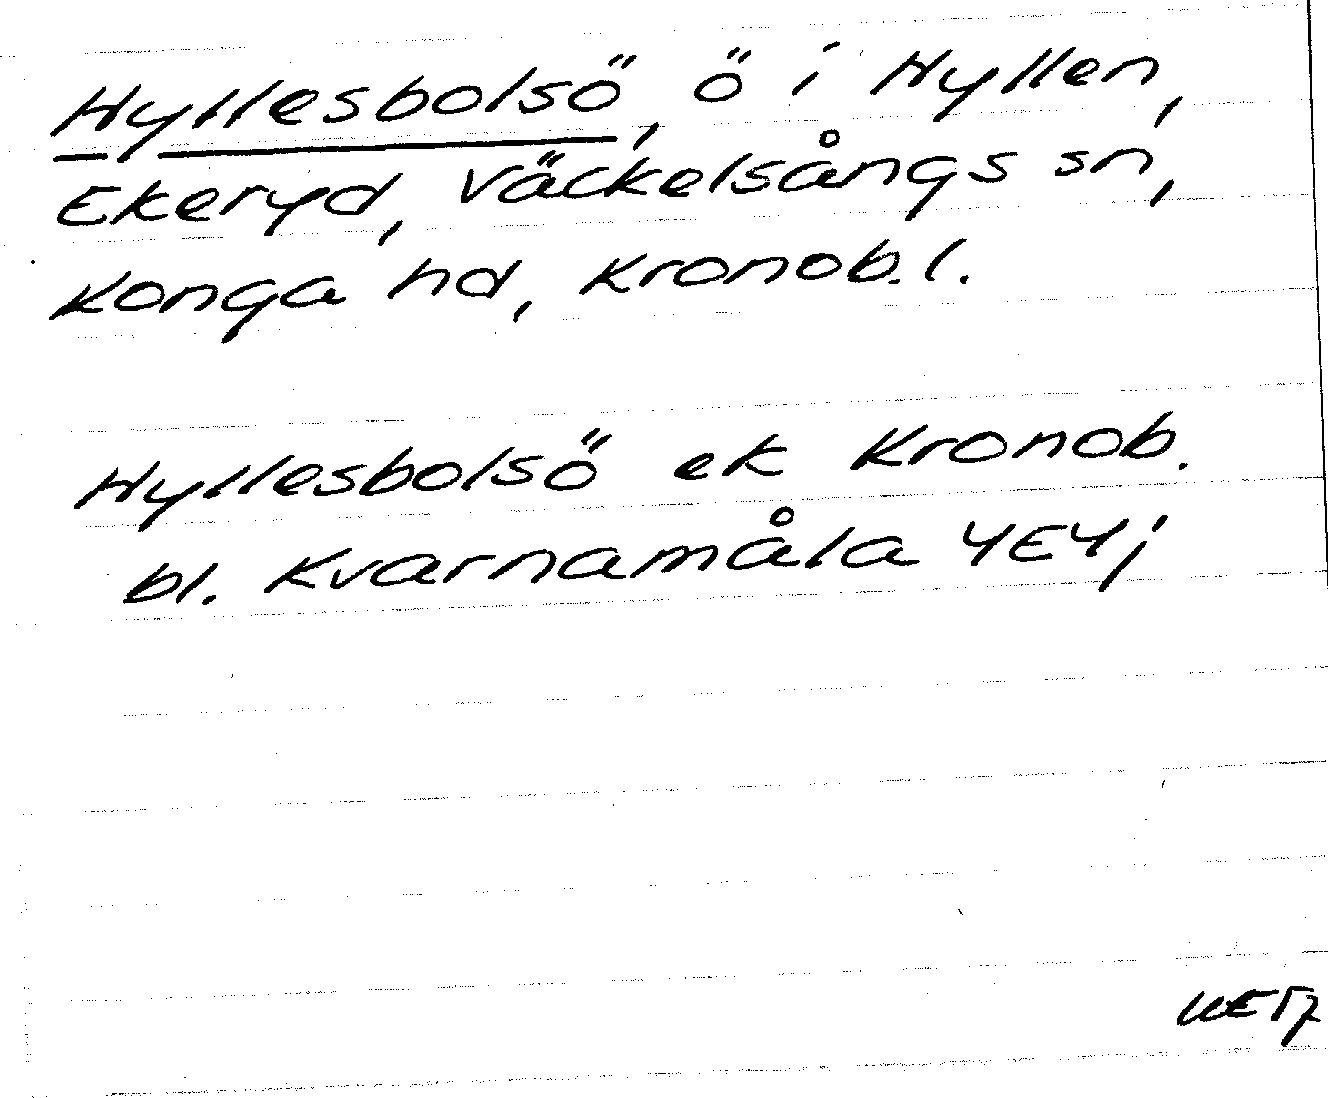 Hyllesbolsö, ö i Hyllen,
Ekeryd, Väckelsångs sn,
Konga hd, Kronob. l.
Hyllesbolsö ek Kronob.
bl. Kvarnamåla 4E4j